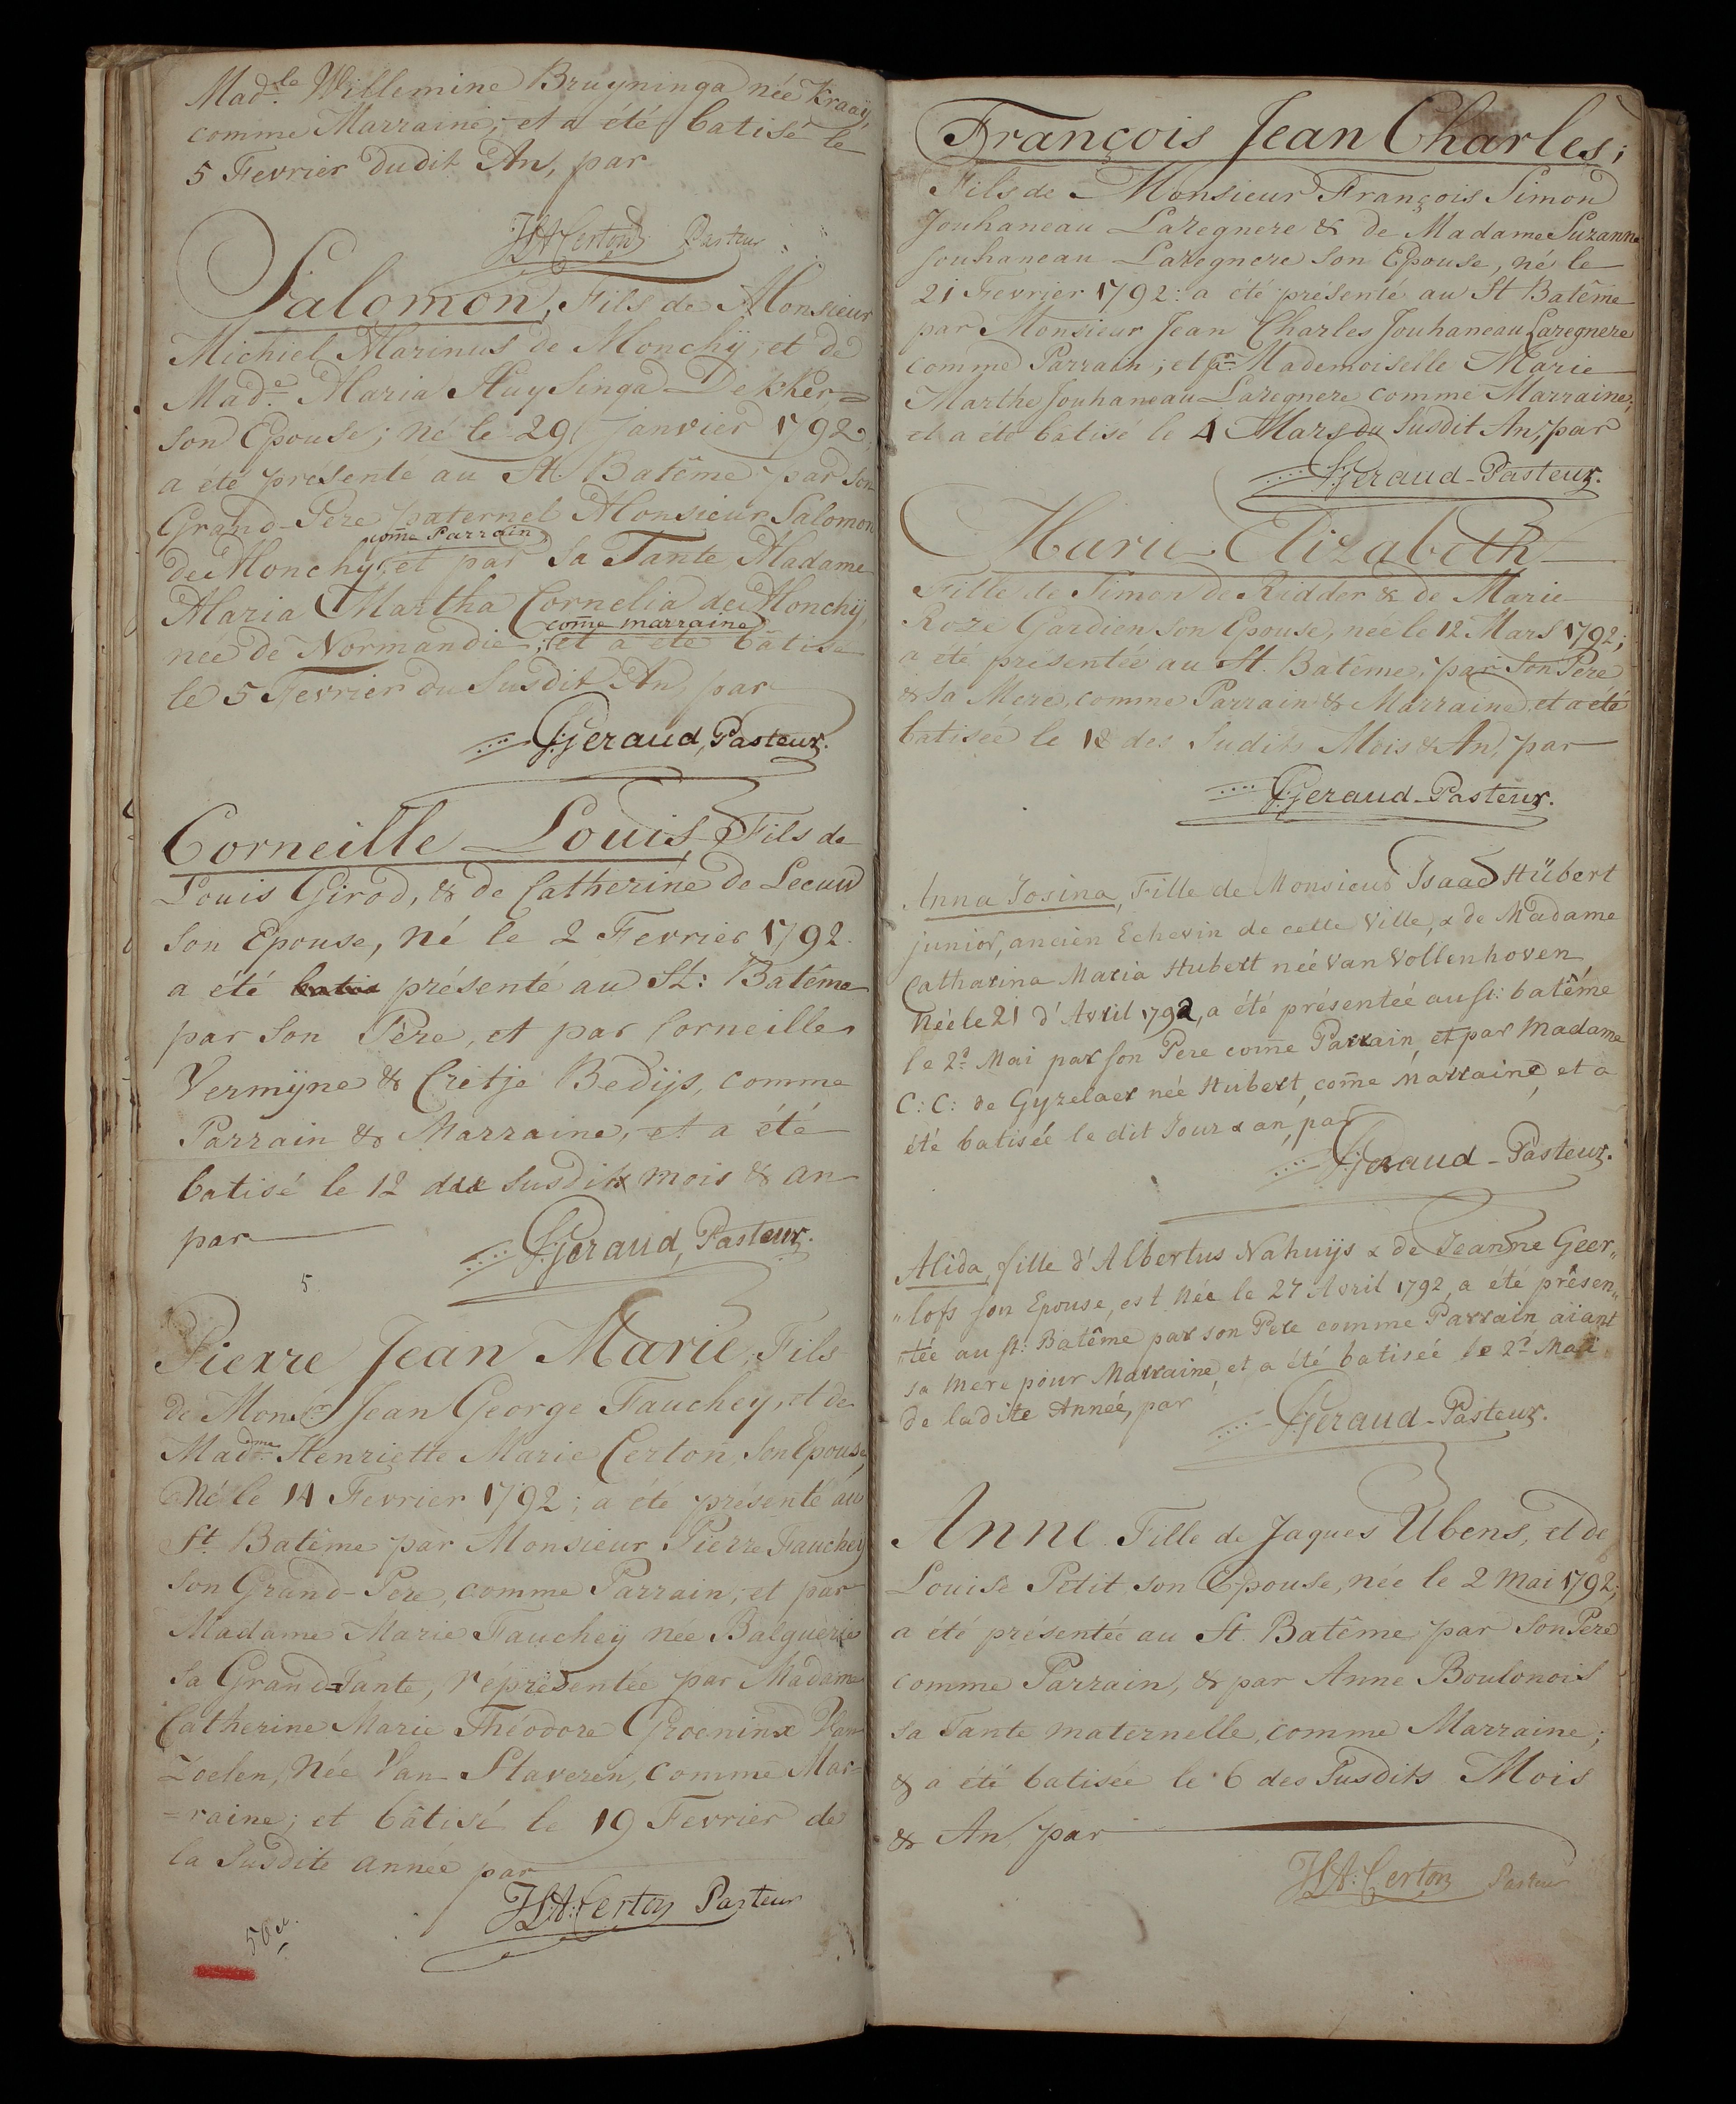 Mad.le Willemine Bruyninga née Kraaÿ,
comme Marraine; et a été batisé le
5 Fevrier dudit An, par
HA: Certon Pasteur
Salomon, Fils de Monsieur
Michiel Marinus de Monchÿ, et de
Made. Maria Huysinga Dekker=
son Epouse; né le 29 Janvier 1792.
a été présenté au St. Batême par son
Grand-Pere paternel Monsieur Salomon
come Parrain
de Monchy, et par sa Tante Madame
Maria Martha Cornelia de Monchÿ,
come marraine
née de Normandie; et a été bâtisé
le 5 Fevrier du susdit An, par
Geraud, Pasteur.
Corneille Louis, Fils de
Louis Girod, & de Catherine de Leeuw
son Epouse, né le 2 Fevrier 1792.
a été batis présenté au St: Batême
par son Père, et par Corneille
Vermijne & Cretje Bedijs, comme
Parrain & Marraine, et a été
batisé le 12 des susdits mois & an
par
Geraud, Pasteur.
5
Pierre Jean Marie, Fils
de Monsr. Jean George Fauchey, et de
Madme. Henriette Marie Certon, son Epouse,
Né le 14 Fevrier 1792; a été présenté au
St. Batême par Monsieur Pierre Fauchey
son Grand-Pere, comme Parrain; et par
Madame Marie Fauchey née Balguérie
sa Grand=Tante, réprésentée par Madame
Catherine Marie Théodore Groeninx Van
Zoelen, Née Van Staveren, comme Mar=
=raine; et bâtisé le 19 Fevrier de
la susdite année par
HA: Certon Pasteur
François Jean Charles;
Fils de Monsieur François Simon
Jouhaneau Laregnere & de Madame Suzanne
Jouhaneau Laregnere son Epouse, né le
21 Fevrier 1792: a été présenté au St Batême
par Monsieur Jean Charles Jouhaneau Laregnere
comme Parrain; et pr. Mademoiselle Marie
Marthe Jouhaneau Laregnere comme Marraine;
et a été batisé le 4 Mars du susdit An, par
Geraud-Pasteur.
Marie Elizabeth
Fille de Simon de Ridder & de Marie
Roze Gardien son Epouse, née le 12 Mars 1792;
a été présentée au St. Batême, par son Pere
& sa Mere, comme Parrain & Marraine, et a été
batisée le 18 des sudits Mois & An, par
Geraud-Pasteur.
Anna Josina, Fille de Monsieur Isaac Hübert
junior, ancien Echevin de cette Ville, & de Madame
Catharina Maria Hubert née Van Vollenhoven
Née le 21 d'Avril 1792, a été présenteé au st: batême
le 2d. Mai par son Pere come Parrain, et par Madame
C: C: de Gyzelaer née Hubert, come Marraine, et a
été batisée le dit Jour & an, par
Geraud-Pasteur.
Alida, fille d'Albertus Nahuijs & de Jeanne Geer„
„lofs son Epouse, est Née le 27 Avril 1792, a été présen„
„tée au st: Batême par son Pere comme Parrain aiant
sa Mere pour Marraine, et a été batiseé le 2d. Mai
de ladite Année, par
Geraud-Pasteur.
Anne Fille de Jaques Ubens, et de
Louise Petit son Epouse, née le 2 Mai 1792;
a été présentée au St. Batême par son Pere
comme Parrain, & par Anne Boulonois
sa Tante maternelle, comme Marraine;
& a été batisée le 6 des susdits Mois
& An, par
HA: Certon Pasteur